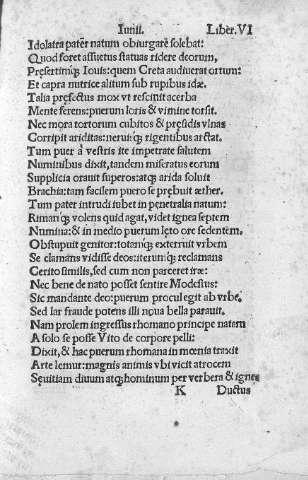 Iunii. Liber. VI
Idolatra pater natum obiurgare solebat:
Quod foret assuetus statuas ridere deorum,
Præsertimq; Iouis: quem Creta audiuerat ortum:
Et capra nutrice alitum sub rupibus idæ.
Talia præfectus mox vt resciuit acerba
Mente ferens: puerum loris & vimine torsit.
Nec mora tortorum cubitos & præsidis vlnas
Corripit ariditas: neruiq; rigentibus arctat.
Tum puer a vestris ite impetrate salutem
Numinibus dixit, tandem miseratus eorum
Supplicia orauit superos: atq; arida soluit
Brachia: tam facilem puero se præbuit æther.
Tum pater intrudi iubet in penetralia natum:
Rimanq; volens quid agat, videt ignea septem
Numina: & in medio puerum læto ore sedentem.
Obstupuit genitor: totamq; exterruit vrbem
Se clamans vidisse deos: iterumq; reclamans
Cerito similis, sed cum non parceret iræ:
Nec bene de nato posset sentire Modestus:
Sic mandante deo: puerum procul egit ab vrbe.
Sed lar fraude potens illi noua bella parauit.
Nam prolem ingressus rhomano principe natam
A solo se posse Vito de corpore pelli:
Dixit, & hac puerum rhomana in mœnia traxit
Arte lemur: magnis animis vbi vicit atrocem
Sæuitiam diuum atq; hominum per verbera & ignes
K Ductus